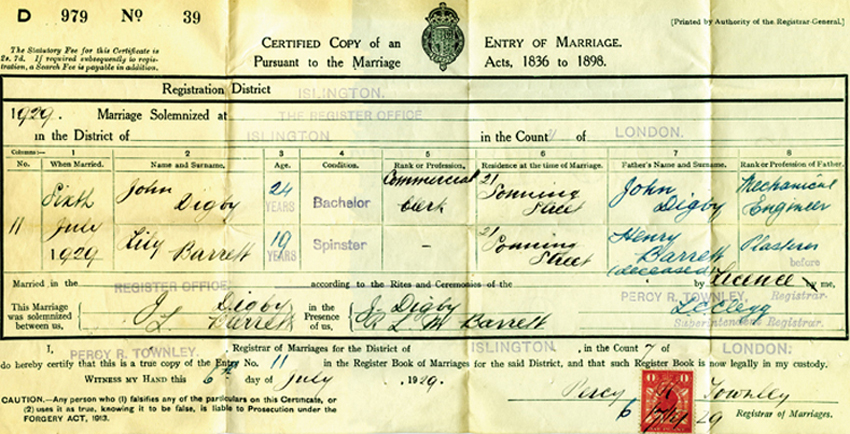 D 979 No 39
[Printed by Authority of the Registrar-General.]
The Statutory Fee for this Certificate is
2s. 7d. If required subsequently to regis-
tration, a Search Fee is payable in addition.
CERTIFIED COPY of an ENTRY OF MARRIAGE.
Pursuant to the Marriage Acts, 1836 to 1898.
Registration District ISLINGTON.
1929. Marriage Solemnized at THE REGISTER OFFICE
in the District of ISLINGTON in the County of LONDON.
Columns:— 1 2 3 4 5 6 7 8
No. When Married. Name and Surname. Age. Condition. Rank or Profession. Residence at the time of Marriage. Father's Name and Surname. Rank or Profession of Father.
11 Sixth July 1929 John Digby 24 YEARS Bachelor Commercial Clerk 21 Sonning Street John Digby Mechanical Engineer
Lily Barrett 19 YEARS Spinster — 21 Sonning Street Henry Barrett (deceased) Plasterer
Married in the REGISTER OFFICE according to the Rites and Ceremonies of the by Licence before me,
This Marriage was solemnized between us, J. Digby L Barrett in the Presence of us, J. Digby R L M Barrett PERCY R. TOWNLEY, Registrar.
L Clegg
Superintendent Registrar.
I, PERCY R. TOWNLEY, Registrar of Marriages for the District of ISLINGTON, in the County of LONDON.
do hereby certify that this is a true copy of the Entry No. 11 in the Register Book of Marriages for the said District, and that such Register Book is now legally in my custody.
WITNESS MY HAND this 6th day of July, 1929.
Percy R Townley
6 29 Registrar of Marriages.
CAUTION.—Any person who (1) falsifies any of the particulars on this Certificate, or
(2) uses it as true, knowing it to be false, is liable to Prosecution under the
FORGERY ACT, 1913.